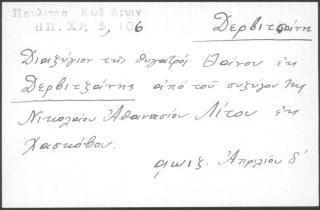 Πουλίτσα Κωδ Δρυιν
ΗΠ. ΧΡ. 5, 106
Δερβιτσάνη
Διαζύγιον τῆς θυγατρὸς Θαίνου ἐκ
Δερβιτζάνης ἀπὸ τοῦ συζύγου της
Νικολάου Ἀθανασίου Λίτου ἐκ
Χασκόβου.
Ἀπριλίου δ΄